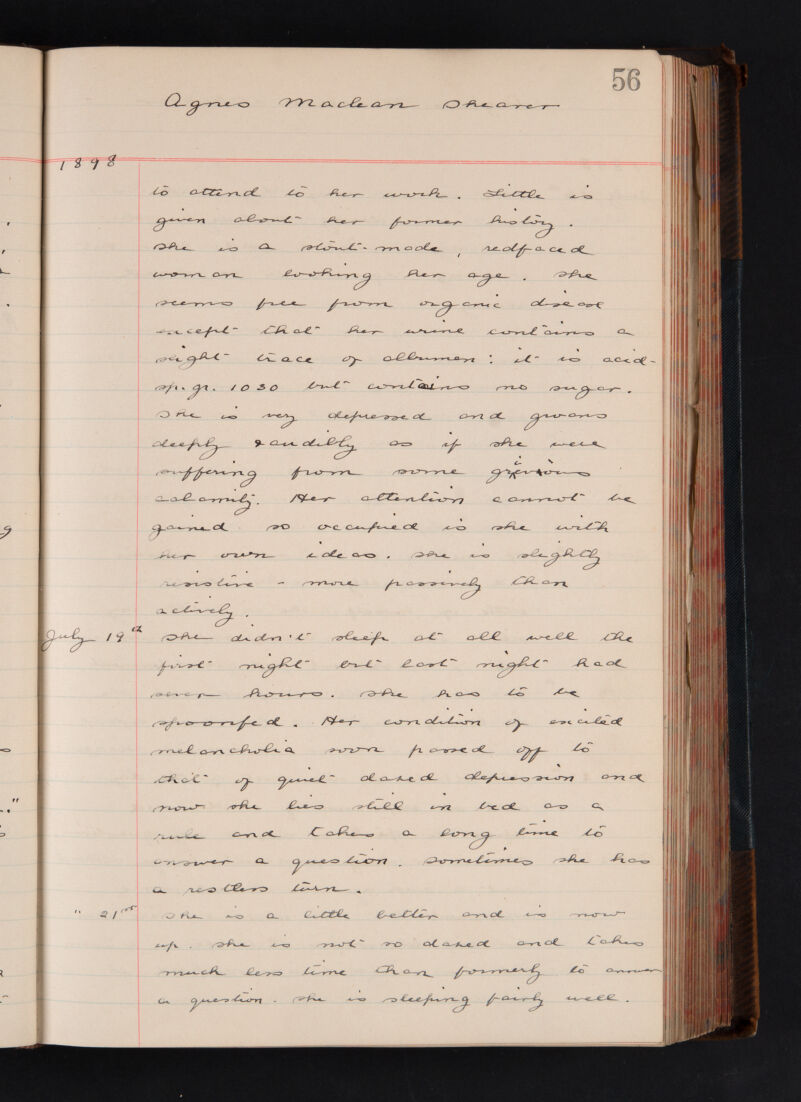 56
Agnes Maclean Shearer
1898
to attend to her work. Little is
given about her former history.
She is a stout-made, redfaced
woman looking her age. She
seems free from organic disease
except that her urine contains a
slight trace of albumen: it is acid-
sp. gr. 1030 but contains no sugar.
She is very depressed and groans
deeply & audibly as if she were
suffering from some grievous
calamity. Her attention cannot be
gained so occupied is she with
her own ideas. She is slightly
resistive - more passively than
actively.
July 19th She didn't sleep at all well the
first night but last night had
seven hours. She has to be
spoonfed. Her condition of excited
melancholia soon passed off to
that of quiet dazed depression and
now she lies still in bed as a
rule and takes a long time to
answer a question. Sometimes she has
a restless turn.
" 21st She is a little better and is now
up. She is not so dazed and takes
much less time than formerly to answer
a question. She is sleeping fairly well.